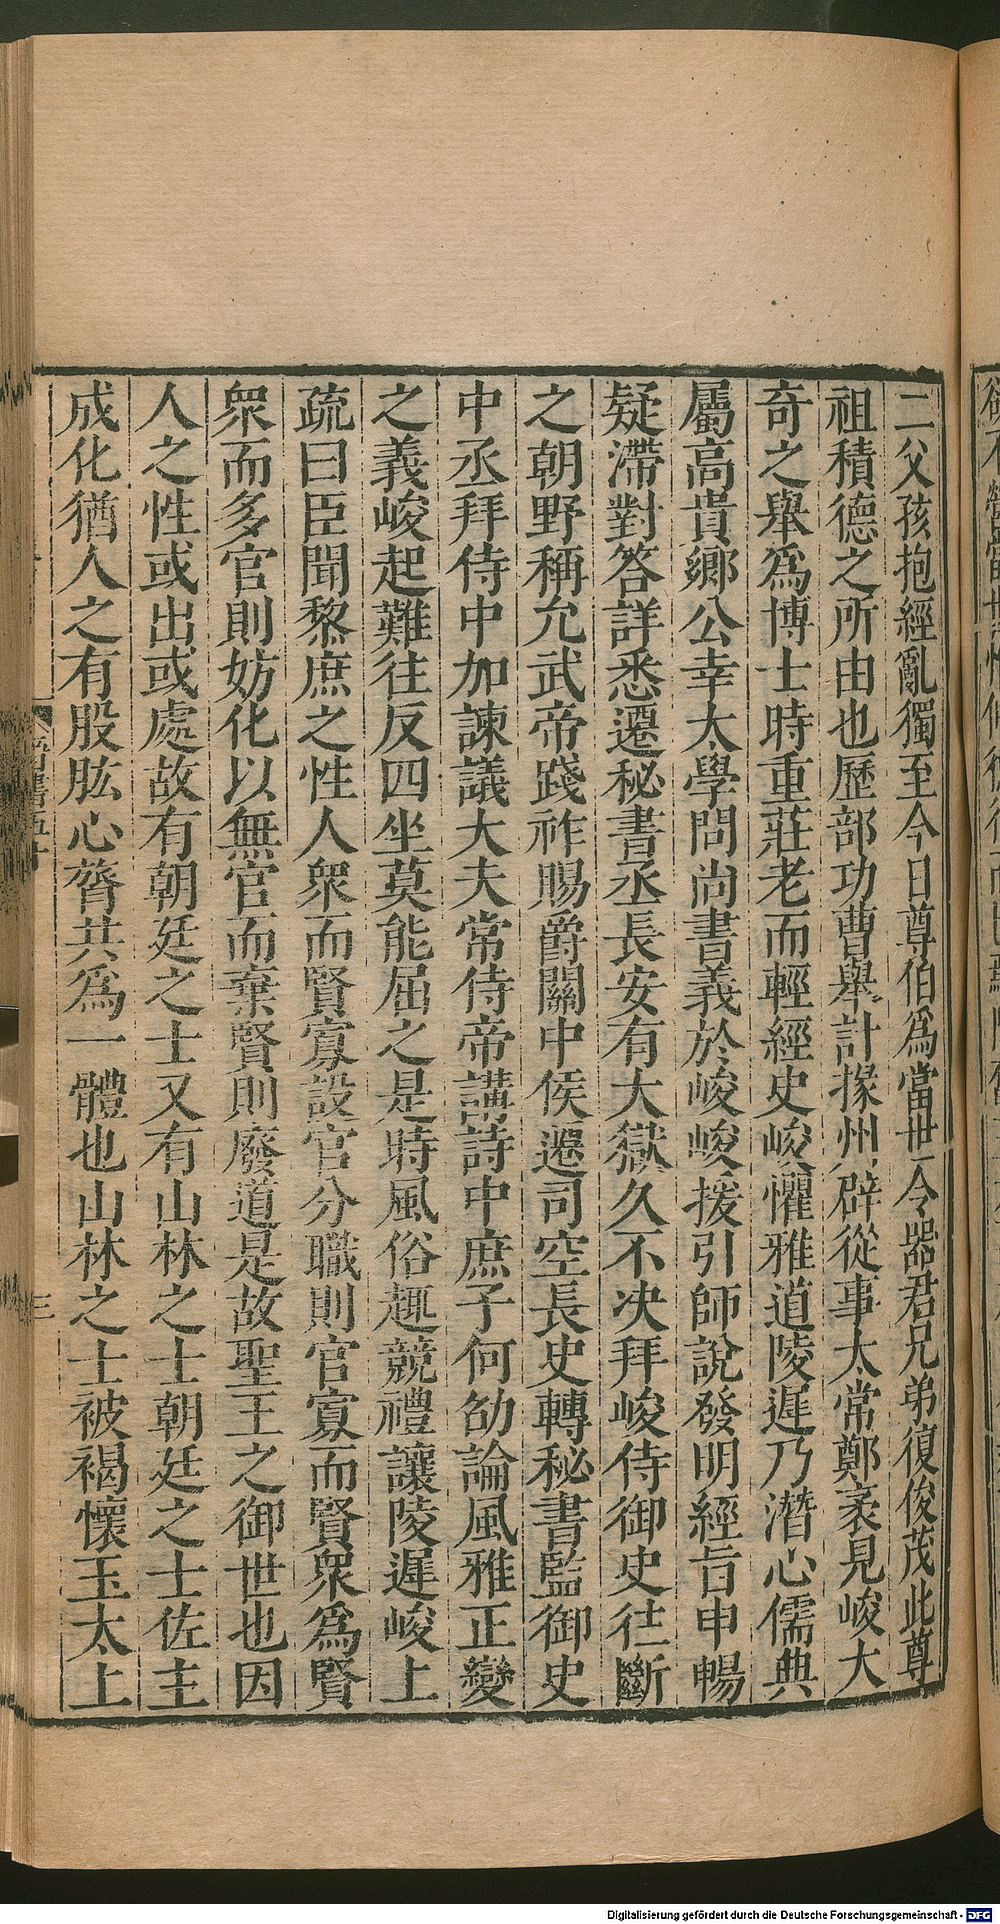 二父孩抱經亂獨至今日尊伯爲當世令器君兄弟復俊茂此尊
祖積德之所由也歷郡功曹舉計掾州辟從事太常鄭袤見峻大
奇之舉爲博士時重莊老而輕經史峻懼雅道陵遲乃潛心儒典
屬高貴鄉公幸太學問尚書義於峻峻援引師說發明經旨申暢
疑滯對答詳悉遷秘書丞長安有大獄久不决拜峻侍御史往斷
之朝野稱允武帝踐祚賜爵關中侯遷司空長史轉秘書監御史
中丞拜侍中加諫議大夫常侍帝講詩中庶子何劭論風雅正變
之義峻起難往反四坐莫能屈之是時風俗趣競禮讓陵遲峻上
疏曰臣聞黎庶之性人衆而賢寡設官分職則官寡而賢衆爲賢
衆而多官則妨化以無官而棄賢則廢道是故聖王之御世也因
人之性或出或處故有朝廷之士又有山林之士朝廷之士佐主
成化猶人之有股肱心膂共爲一體也山林之士被褐懷玉太上
三
Digitalisierung gefördert durch die Deutsche Forschungsgemeinschaft - DFG